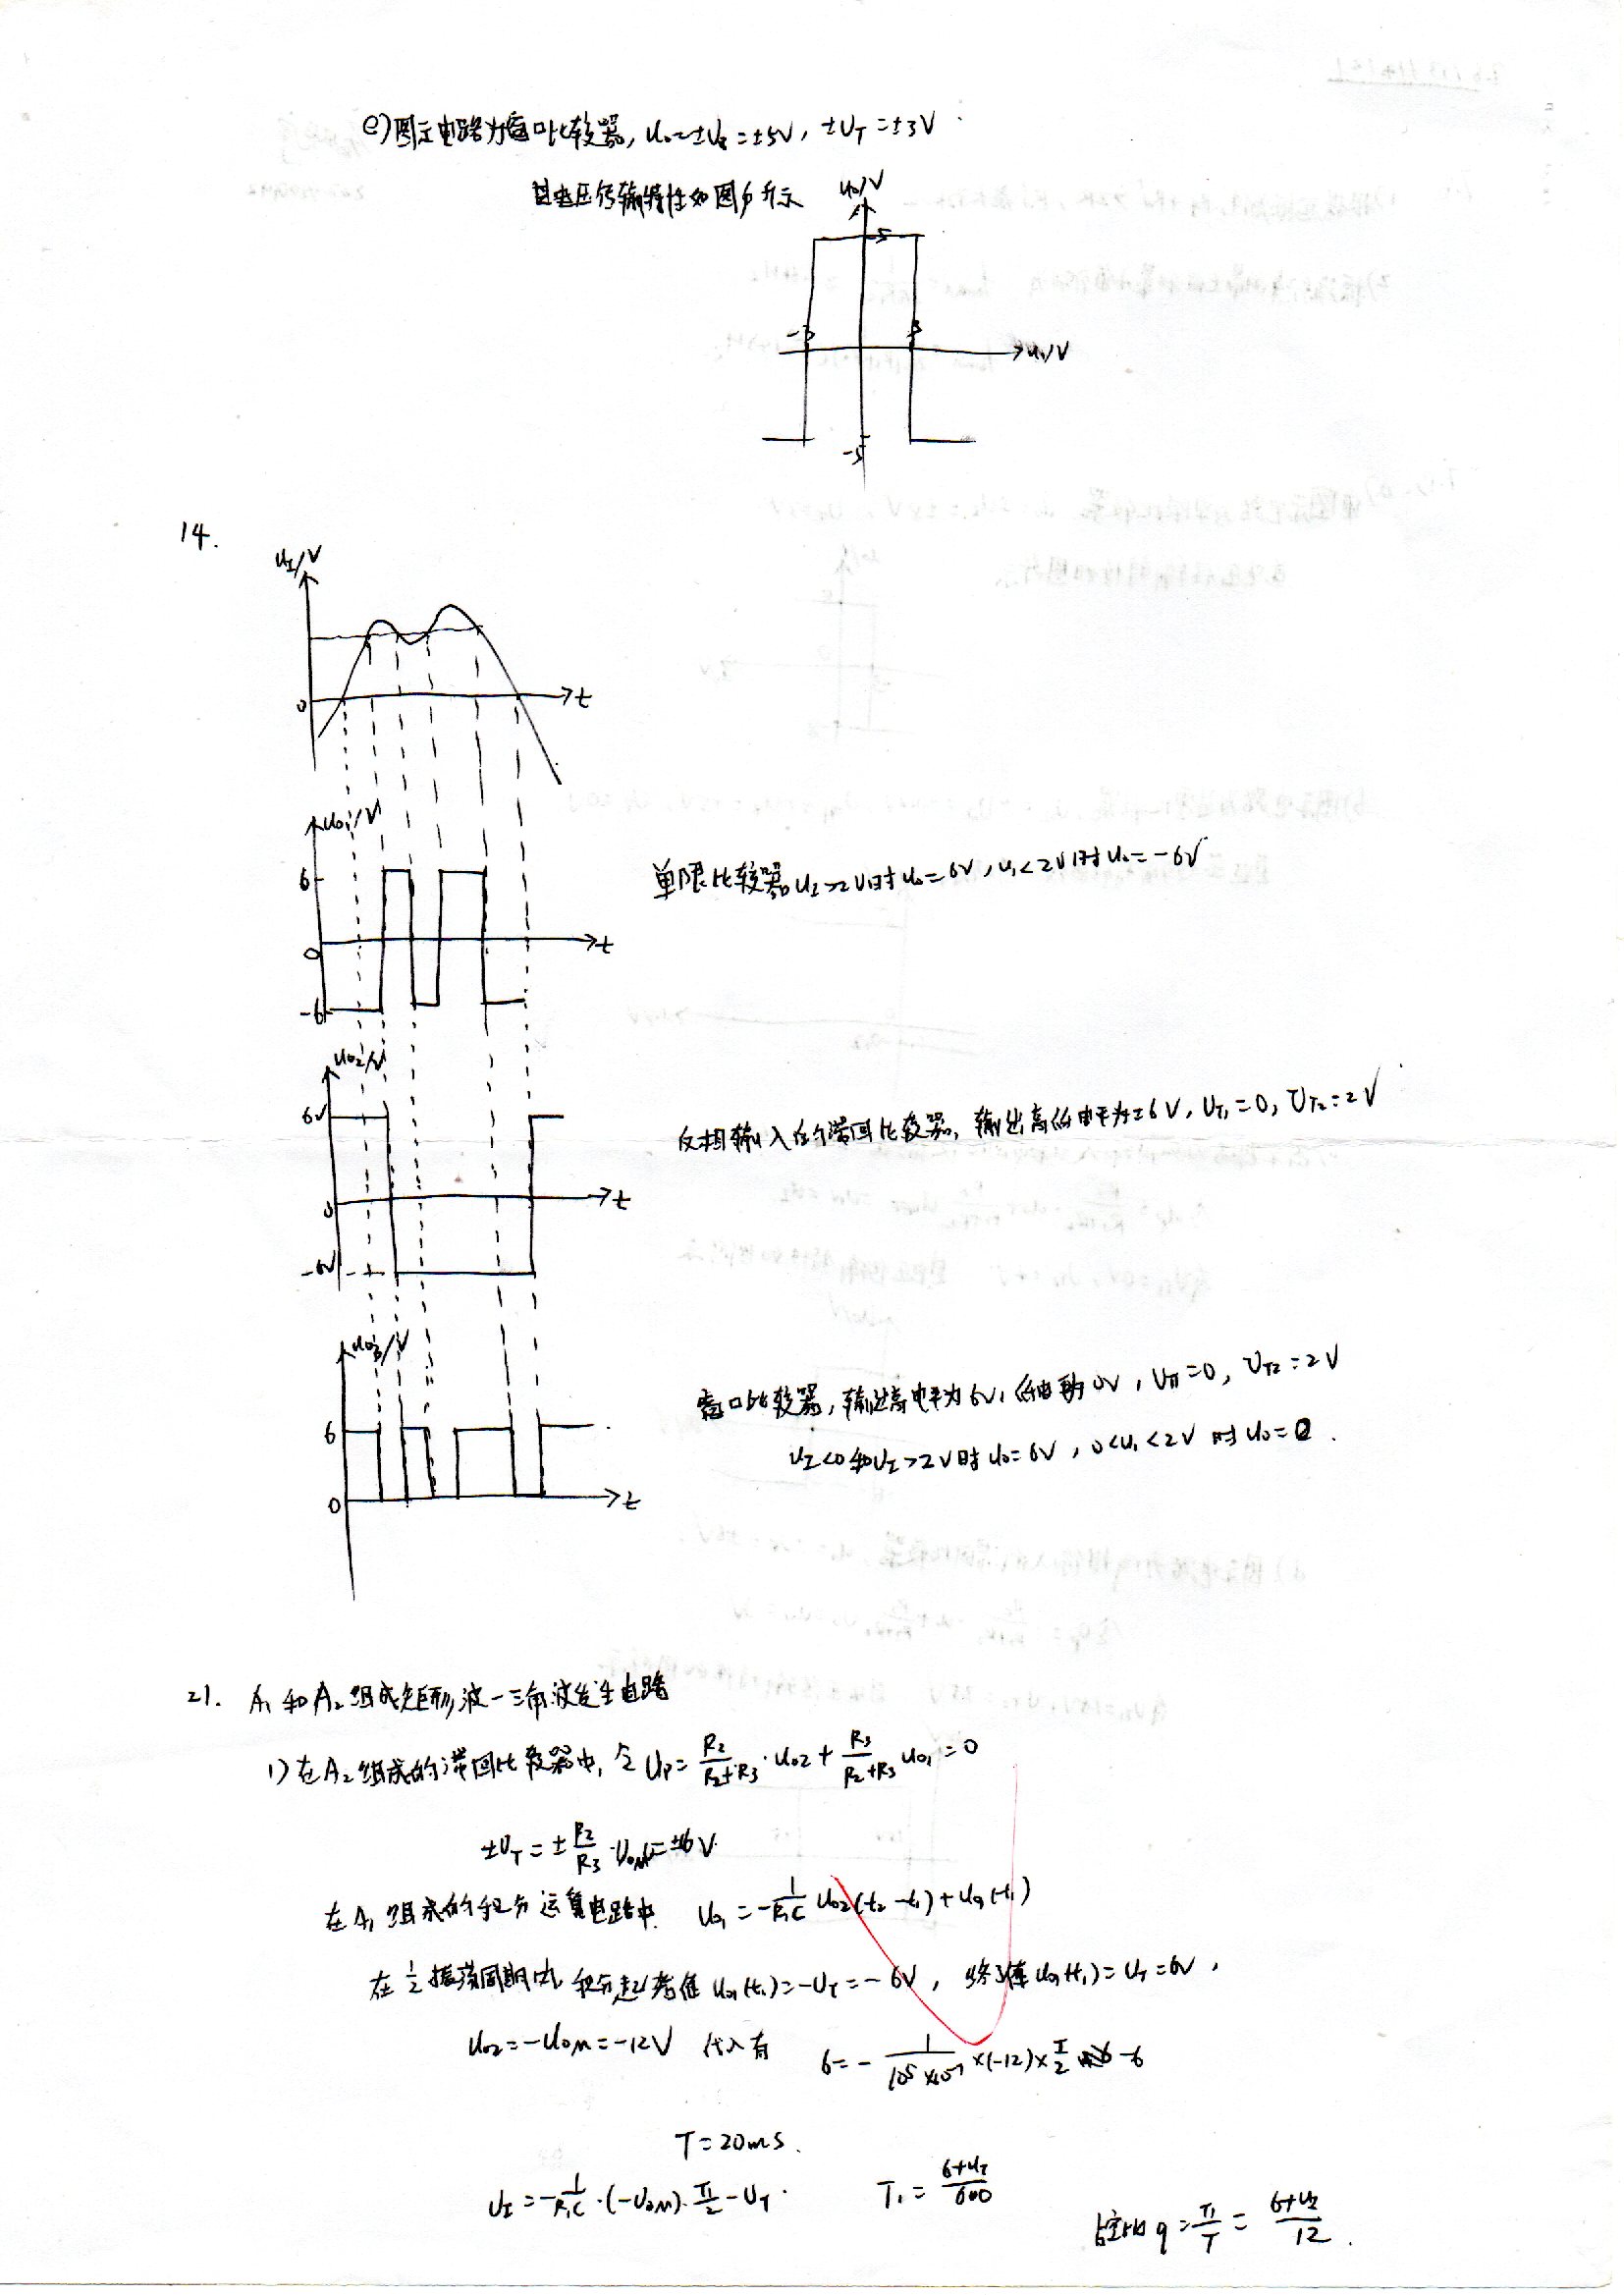 e) 图示电路为窗口比较器, u₀=±U_Z=±5V, ±U_T=±3V
其电压传输特性如图所示
u₀/V
5
-3 3
u_I/V
-5
14.
u_I/V
0 t
u₀₁/V
6
单限比较器。u_I>2V时u₀=6V, u_I<2V时u₀=-6V
0 t
-6
u₀₂/V
6V
反相输入的滞回比较器, 输出高低电平为±6V, U_T1=0, U_T2=2V
0 t
-6V
u₀₃/V
窗口比较器, 输出高电平为6V, 低电平为0V, U_T1=0, U_T2=2V
6
u_I<0和u_I>2V时u₀=6V, 0<u_I<2V时u₀=0.
0 t
21. A₁和A₂组成矩形波—三角波发生电路
1) 在A₂组成的滞回比较器中, 令 U_P = R₂/(R₂+R₃)·u₀₂ + R₃/(R₂+R₃) u₀₁ = 0
±U_T = ± R₂/R₃ ·U_OM = ±6V.
在A₁组成的积分运算电路中. u₀₁ = -1/(R₁C) u₀₂(t₂-t₁)+u₀₁(t₁)
在½振荡周期中, 积分起始值u₀₁(t₁)=-U_T=-6V, 终了值u₀₁(t₁)=U_T=6V,
u₀₂=-U_OM=-12V 代入有 6 = - 1/(10⁵×10⁻⁷) ×(-12)× T/2 -6
T=20ms.
u_I = -1/(R₁C) ·(-U_OM)· T₁/2 -U_T. T₁ = (6+u_I)/600
占空比 q = T₁/T = (6+u_I)/12.